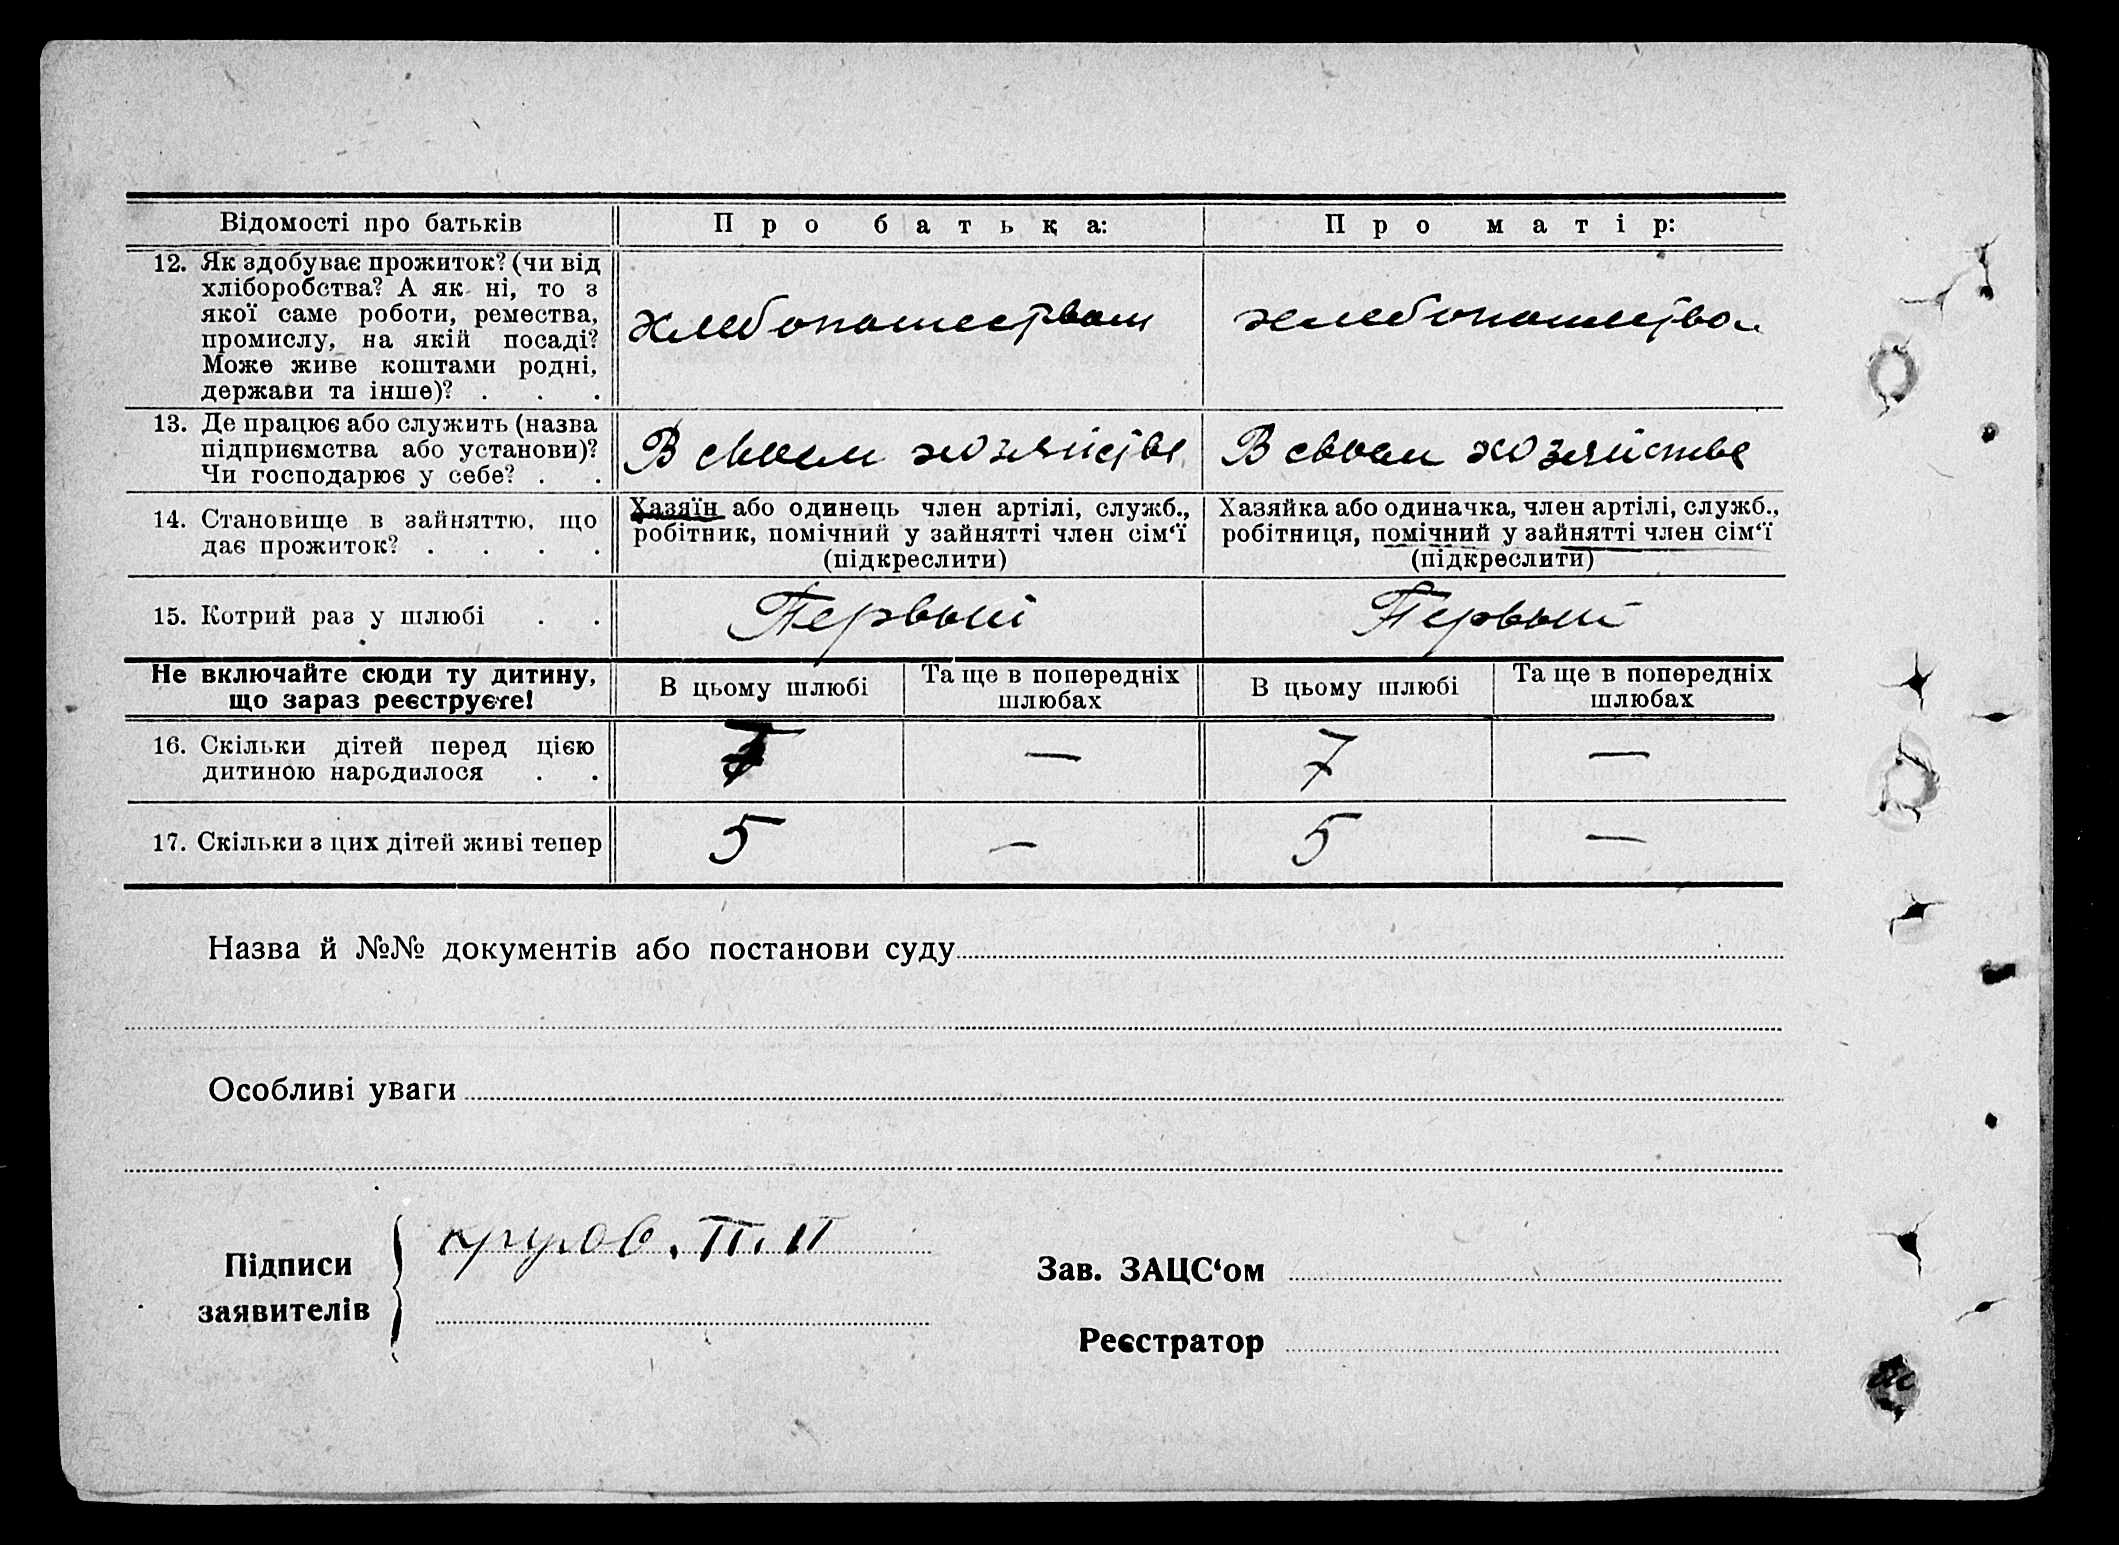 Відомості про батьків
Про батька:
Про матір:
12. Як здобуває прожиток? (чи від
хліборобства? А як ні, то з
якої саме роботи, ремества,
промислу, на якій посаді?
Може живе коштами родні,
держави та інше)? . . .
хлебопашеством
хлебопашество
13. Де працює або служить (назва
підприємства або установи)?
Чи господарює у себе? . .
В своем хозяйстве
В своем хозяйстве
14. Становище в зайняттю, що
дає прожиток? . . . .
Хазяїн або одинець член артілі, служб.,
робітник, помічний у зайнятті член сім'ї
(підкреслити)
Хазяйка або одиначка, член артілі, служб.,
робітниця, помічний у зайнятті член сім'ї
(підкреслити)
15. Котрий раз у шлюбі . .
Первый
Первый
Не включайте сюди ту дитину,
що зараз реєструєте!
В цьому шлюбі
Та ще в попередніх
шлюбах
В цьому шлюбі
Та ще в попередніх
шлюбах
16. Скільки дітей перед цією
дитиною народилося . .
7 — 7 —
17. Скільки з цих дітей живі тепер
5 — 5 —
Назва й №№ документів або постанови суду
Особливі уваги
Підписи
заявителів
Зав. ЗАЦС'ом
Реєстратор